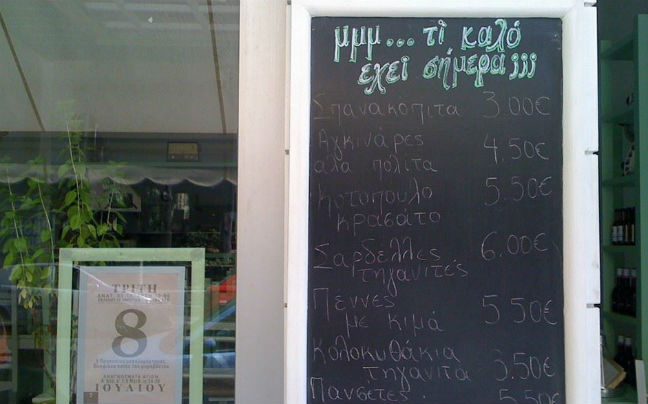 μμμ... τί καλό
έχει σήμερα ;;;
Σπανακόπιτα 3.00€
Αγκινάρες
αλά πολίτα 4.50€
Κοτόπουλο 5.50€
κρασάτο
Σαρδέλλες 6.00€
τηγανιτές
Πέννες 5.50€
με κιμά
Κολοκυθάκια
τηγανιτά 3.50€
Πανσέτες 5.50
ΤΡΙΤΗ
8
ΙΟΥΛΙΟΥ